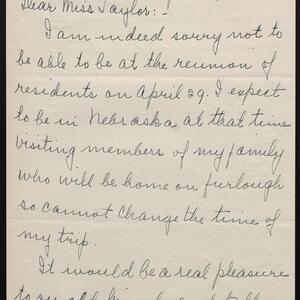 Dear Miss Taylor:-!
I am indeed sorry not to
be able to be at the reunion of
residents on April 29. I expect
to be in Nebraska at that time
visiting members of my family
who will be home on furlough
so cannot change the time of
my trip.
It would be a real pleasure
to see old